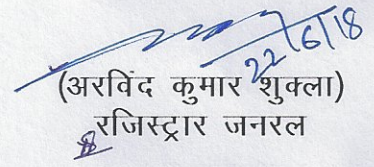 22/6/18
(अरविंद कुमार शुक्ला)
रजिस्ट्रार जनरल